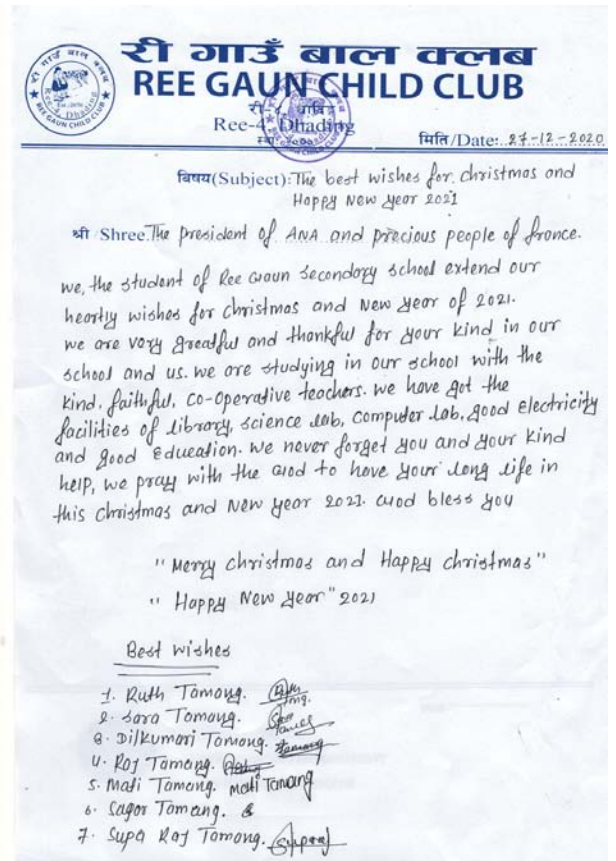 री गाउँ बाल क्लब
REE GAUN CHILD CLUB
Ree-4, Dhading
मिति/Date: 27-12-2020
बिषय(Subject): The best wishes for christmas and
Happy New year 2021
श्री/Shree. The president of ANA and precious people of france.
we, the student of Ree Gaun secondary school extend our
heartly wishes for christmas and New year of 2021.
we are very greatful and thankful for your kind in our
school and us. we are studying in our school with the
kind, faithful, co-operative teachers. we have got the
facilities of library, science lab, computer lab, good electricity
and good Education. we never forget you and your kind
help, we pray with the God to have your long life in
this christmas and New year 2021. God bless you
"Merry christmas and Happy christmas"
"Happy New year" 2021
Best wishes
1. Ruth Tamang.
2. Sara Tamang.
3. Dilkumari Tamang.
4. Raj Tamang.
5. Mati Tamang. Mati Tamang
6. Sagar Tamang.
7. Supa Raj Tamang.